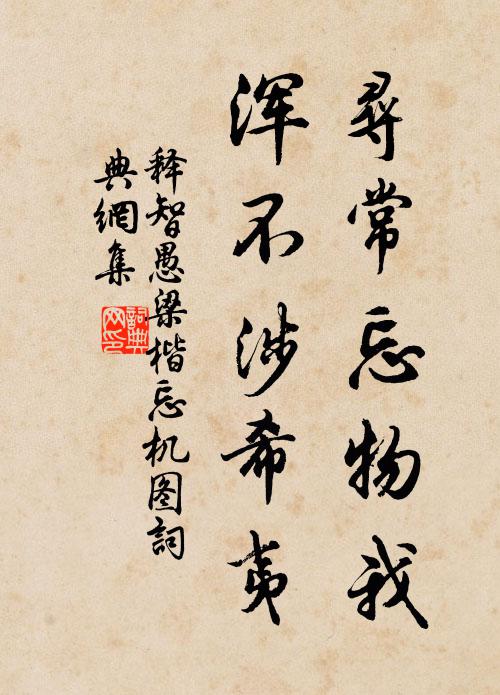 尋常忘物我
浑不涉希夷
释智愚梁楷忘机图詞
典網集
詞典
网印